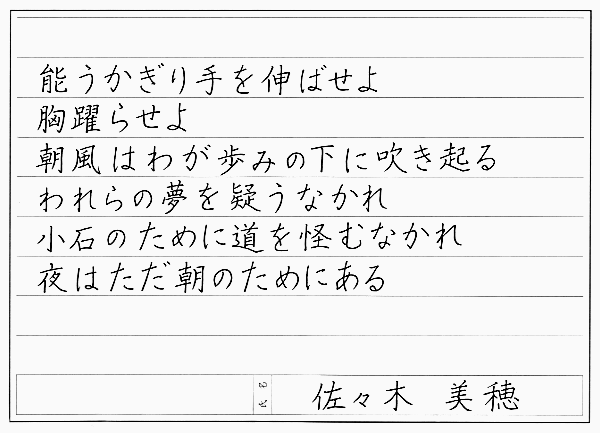 能うかぎり手を伸ばせよ
胸躍らせよ
朝風はわが歩みの下に吹き起る
われらの夢を疑うなかれ
小石のために道を怪むなかれ
夜はただ朝のためにある
佐々木 美穂